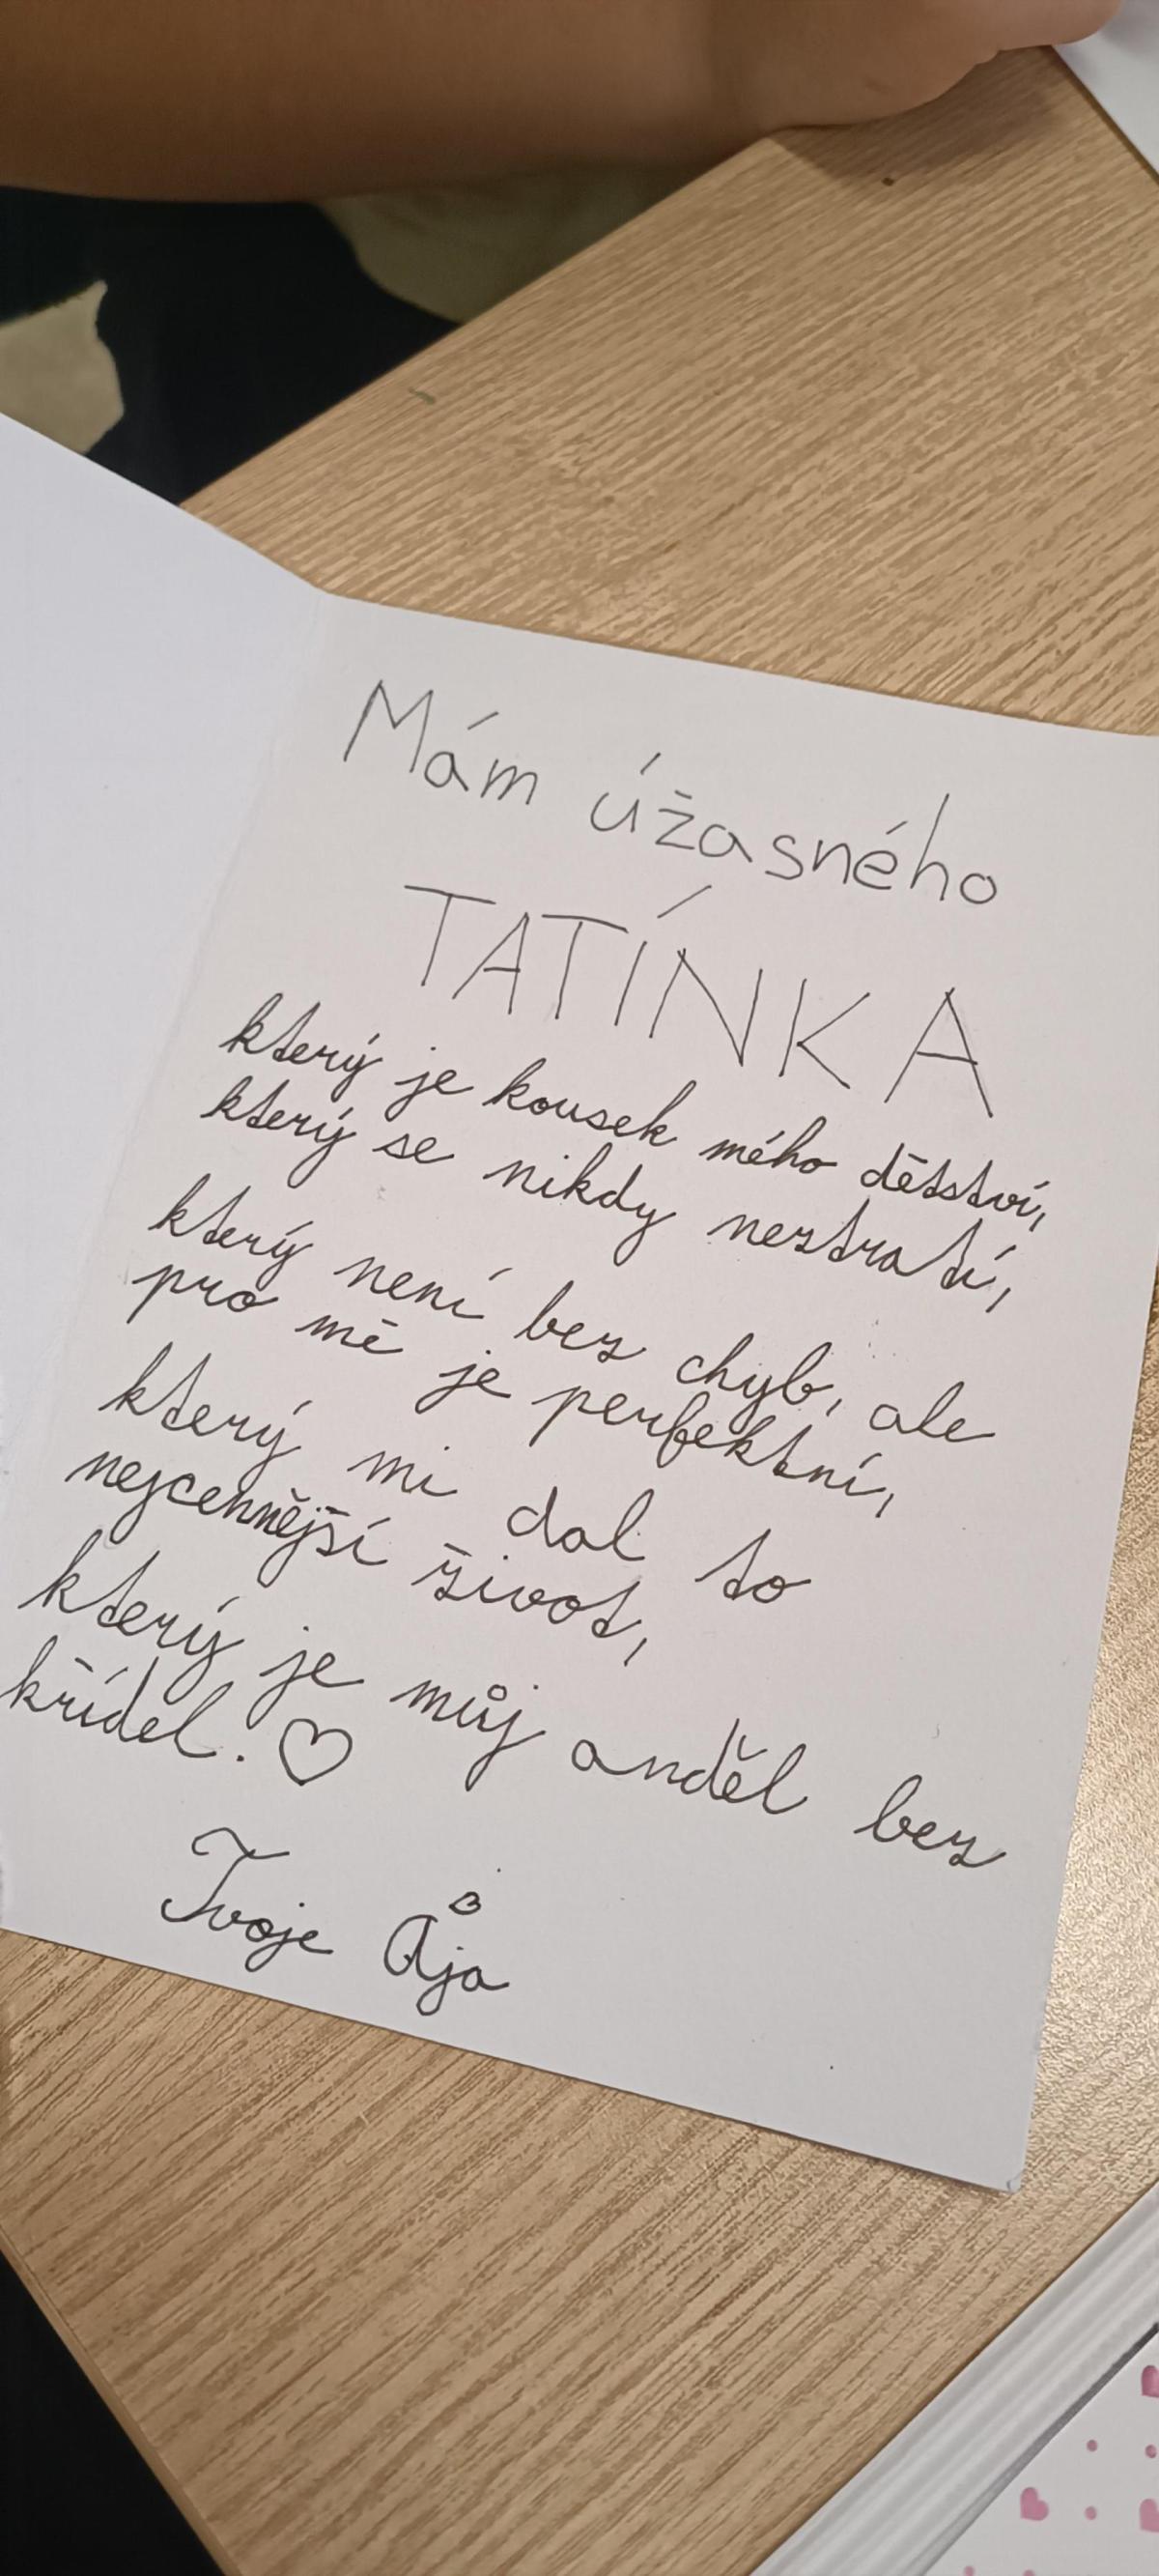 Mám úžasného
TATÍNKA
který je kousek mého dětství,
který se nikdy neztratí,
který není bez chyb, ale
pro mě je perfektní,
který mi dal to
nejcennější život,
který je můj anděl bez
křídel. ♡
Tvoje Åja